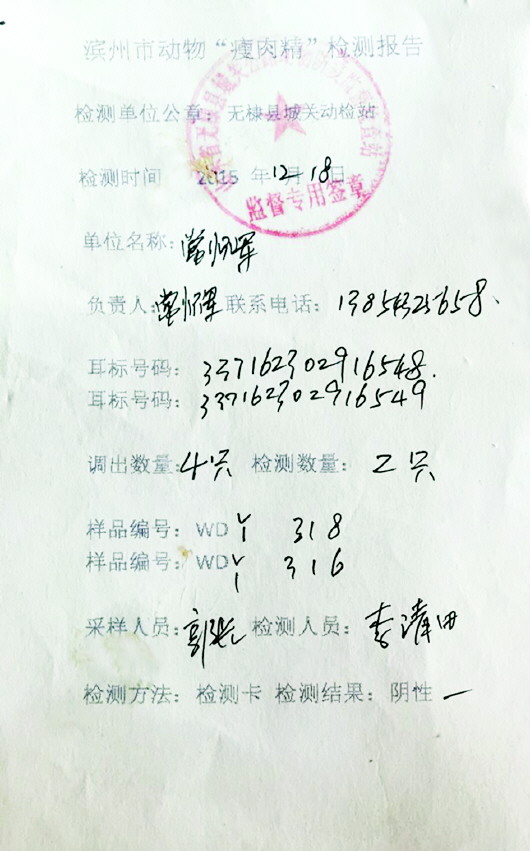 滨州市动物“瘦肉精”检测报告
检测单位公章：无棣县城关动检站
监督专用签章
检测时间 2015 年 12 月 18 日
单位名称：常怀军
负责人：常怀军 联系电话：13854325658
耳标号码：337162302916548
耳标号码：337162302916549
调出数量：4只 检测数量：2只
样品编号：WDY 318
样品编号：WDY 316
采样人员：郭 检测人员：李清田
检测方法：检测卡 检测结果：阴性 一